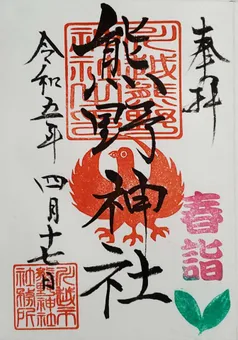 奉拝
春詣
熊野神社
川越熊野神社
令和五年 四月十七日
川越市熊野神社社務所